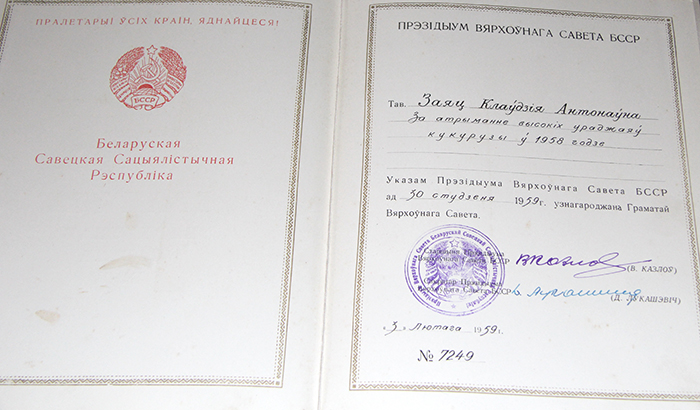 ПРАЛЕТАРЫІ ЎСІХ КРАІН, ЯДНАЙЦЕСЯ!
БССР
Беларуская
Савецкая Сацыялістычная
Рэспубліка
ПРЭЗІДЫУМ ВЯРХОЎНАГА САВЕТА БССР
Тав. Заяц Клаўдзія Антонаўна
За атрыманне высокіх ураджаяў
кукурузы ў 1958 годзе
Указам Прэзідыума Вярхоўнага Савета БССР
ад 30 студзеня 1959г. узнагароджана Граматай
Вярхоўнага Савета.
Старшыня Прэзідыума
Вярхоўнага Савета БССР
(В. КАЗЛОЎ)
Сакратар Прэзідыума
Вярхоўнага Савета БССР
(Д. ЛУКАШЭВІЧ)
„3„ Лютага 1959г.
№ 7249